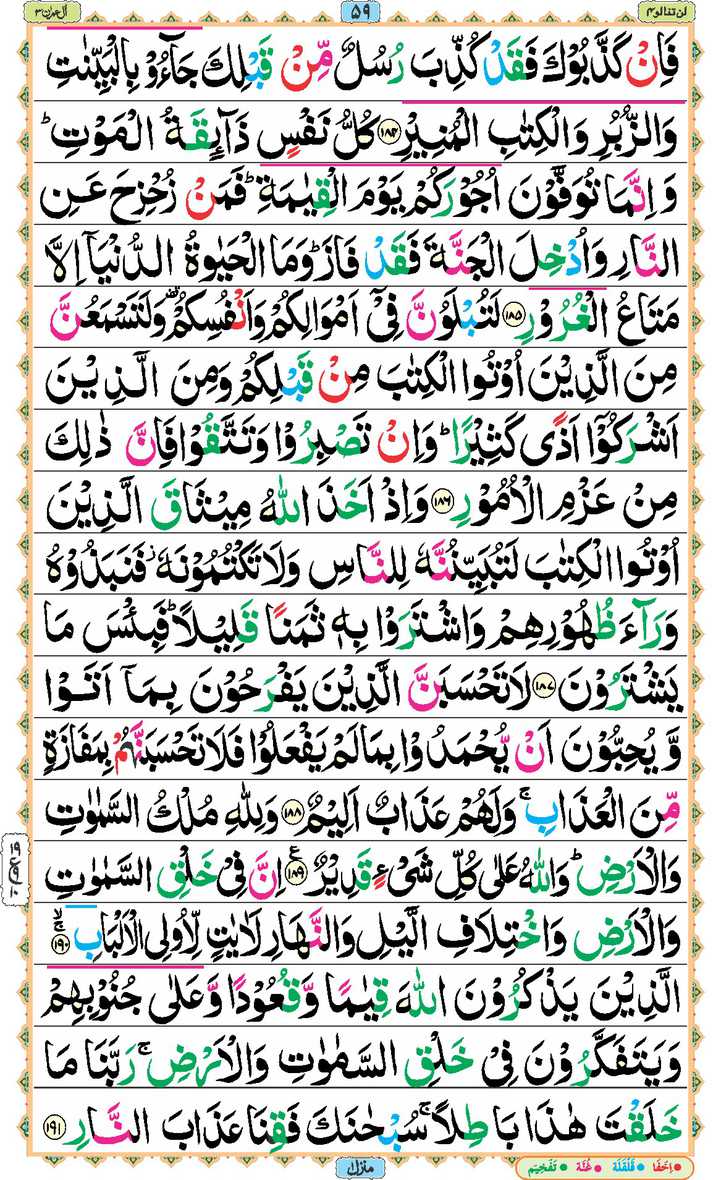 لن تنالوا ۴ ۵۹ اٰل عمرٰن ۳
فَاِنْ كَذَّبُوْكَ فَقَدْ كُذِّبَ رُسُلٌ مِّنْ قَبْلِكَ جَآءُوْ بِالْبَیِّنٰتِ
وَالزُّبُرِ وَالْكِتٰبِ الْمُنِیْرِ ۱۸۴ كُلُّ نَفْسٍ ذَآىِٕقَةُ الْمَوْتِ ؕ
وَ اِنَّمَا تُوَفَّوْنَ اُجُوْرَكُمْ یَوْمَ الْقِیٰمَةِ ؕ فَمَنْ زُحْزِحَ عَنِ
النَّارِ وَاُدْخِلَ الْجَنَّةَ فَقَدْ فَازَ ؕ وَمَا الْحَیٰوةُ الدُّنْیَاۤ اِلَّا
مَتَاعُ الْغُرُوْرِ ۱۸۵ لَتُبْلَوُنَّ فِیْۤ اَمْوَالِكُمْ وَاَنْفُسِكُمْ ۫ وَلَتَسْمَعُنَّ
مِنَ الَّذِیْنَ اُوْتُوا الْكِتٰبَ مِنْ قَبْلِكُمْ وَمِنَ الَّذِیْنَ
اَشْرَكُوْۤا اَذًی كَثِیْرًا ؕ وَاِنْ تَصْبِرُوْا وَتَتَّقُوْا فَاِنَّ ذٰلِكَ
مِنْ عَزْمِ الْاُمُوْرِ ۱۸۶ وَاِذْ اَخَذَ اللّٰهُ مِیْثَاقَ الَّذِیْنَ
اُوْتُوا الْكِتٰبَ لَتُبَیِّنُنَّهٗ لِلنَّاسِ وَلَا تَكْتُمُوْنَهٗ ؗ فَنَبَذُوْهُ
وَرَآءَ ظُهُوْرِهِمْ وَاشْتَرَوْا بِهٖ ثَمَنًا قَلِیْلًا ؕ فَبِئْسَ مَا
یَشْتَرُوْنَ ۱۸۷ لَا تَحْسَبَنَّ الَّذِیْنَ یَفْرَحُوْنَ بِمَاۤ اَتَوْا
وَّ یُحِبُّوْنَ اَنْ یُّحْمَدُوْا بِمَا لَمْ یَفْعَلُوْا فَلَا تَحْسَبَنَّهُمْ بِمَفَازَةٍ
مِّنَ الْعَذَابِ ۚ وَلَهُمْ عَذَابٌ اَلِیْمٌ ۱۸۸ وَلِلّٰهِ مُلْكُ السَّمٰوٰتِ
وَالْاَرْضِ ؕ وَاللّٰهُ عَلٰی كُلِّ شَیْءٍ قَدِیْرٌ ۱۸۹ اِنَّ فِیْ خَلْقِ السَّمٰوٰتِ
وَالْاَرْضِ وَاخْتِلَافِ الَّیْلِ وَالنَّهَارِ لَاٰیٰتٍ لِّاُولِی الْاَلْبَابِ ۱۹۰
الَّذِیْنَ یَذْكُرُوْنَ اللّٰهَ قِیٰمًا وَّقُعُوْدًا وَّعَلٰی جُنُوْبِهِمْ
وَیَتَفَكَّرُوْنَ فِیْ خَلْقِ السَّمٰوٰتِ وَالْاَرْضِ ۚ رَبَّنَا مَا
خَلَقْتَ هٰذَا بَاطِلًا ۚ سُبْحٰنَكَ فَقِنَا عَذَابَ النَّارِ ۱۹۱
منزل ۱
اِخْفَا قَلْقَلَة غُنَّة تَفْخِیْم